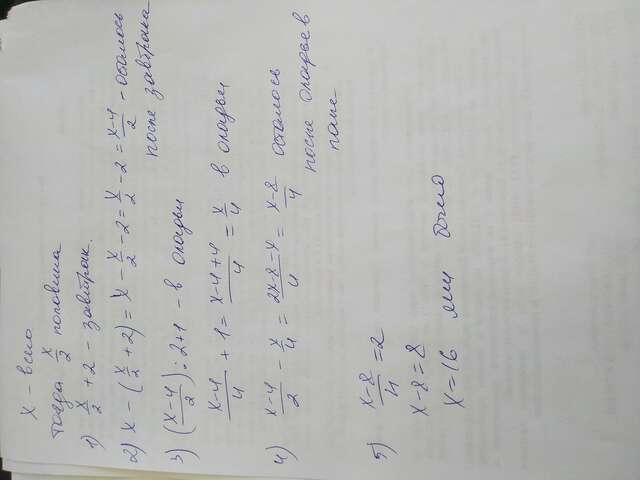 x - всего
тогда x/2 половина
1) x/2 + 2 - завтрак.
2) x - (x/2 + 2) = x - x/2 - 2 = x/2 - 2 = x-4/2 - осталось
после завтрака
3) (x-4/2) : 2 + 1 - в оладьи
x-4/4 + 1 = x-4+4/4 = x/4 в оладьи
4) x-4/2 - x/4 = 2x-8-x/4 = x-8/4 осталось
после оладьев
5) x-8/4 = 2
x-8 = 8
x = 16 яиц было